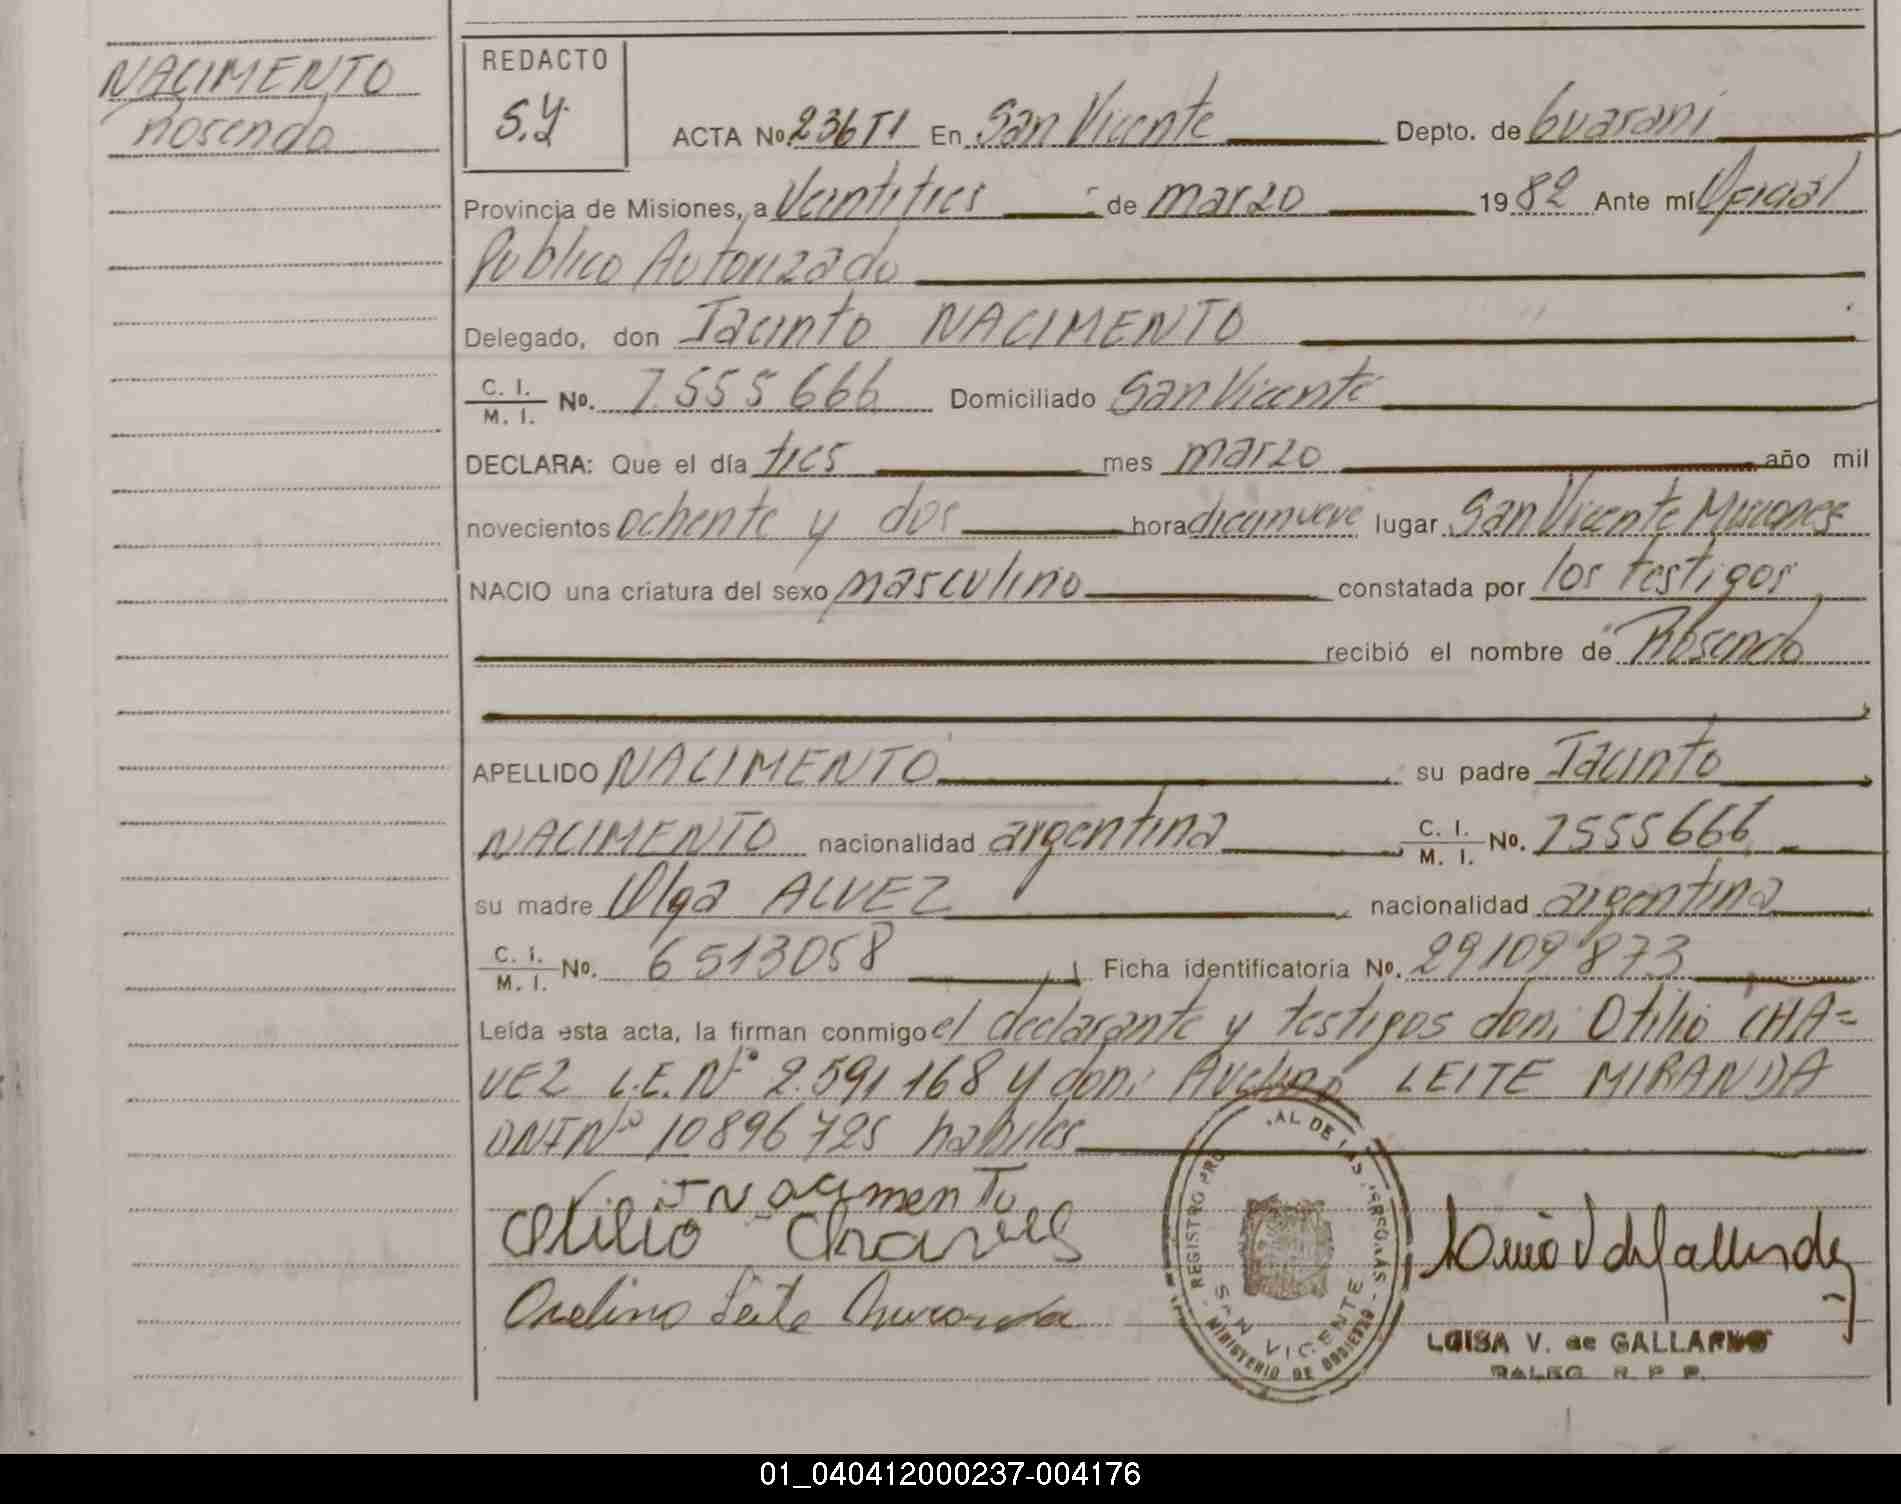 NACIMENTO
Rosendo
REDACTO
S.Y.
ACTA No. 236 T1 En San Vicente Depto. de Guarani
Provincia de Misiones, a Veintitres de marzo 1982 Ante mí Oficial
Publico Autorizado
Delegado, don Jacinto NACIMENTO
C. I. / M. I. No. 7.555 666 Domiciliado San Vicente
DECLARA: Que el día tres mes marzo año mil
novecientos ochenta y dos hora diecinueve lugar San Vicente Misiones
NACIO una criatura del sexo masculino constatada por los testigos
recibió el nombre de Rosendo
APELLIDO NACIMENTO su padre Jacinto
NACIMENTO nacionalidad argentina C. I. / M. I. No. 7555666
su madre Olga ALVEZ nacionalidad argentina
C. I. / M. I. No. 6513058 Ficha identificatoria No. 29109873
Leída esta acta, la firman conmigo el declarante y testigos don: Otilio CHA=
VEZ L.E. Nº 2.591 168 y don: LEITE MIRANDA
DNI Nº 10896725 habiles
J Nacimento
Otilio Chavez
Leite
REGISTRO AL DE LAS PERSONAS - MINISTERIO DE GOBIERNO
SAN VICENTE
LUISA V. de GALLARDO
R. P. P.
01_040412000237-004176